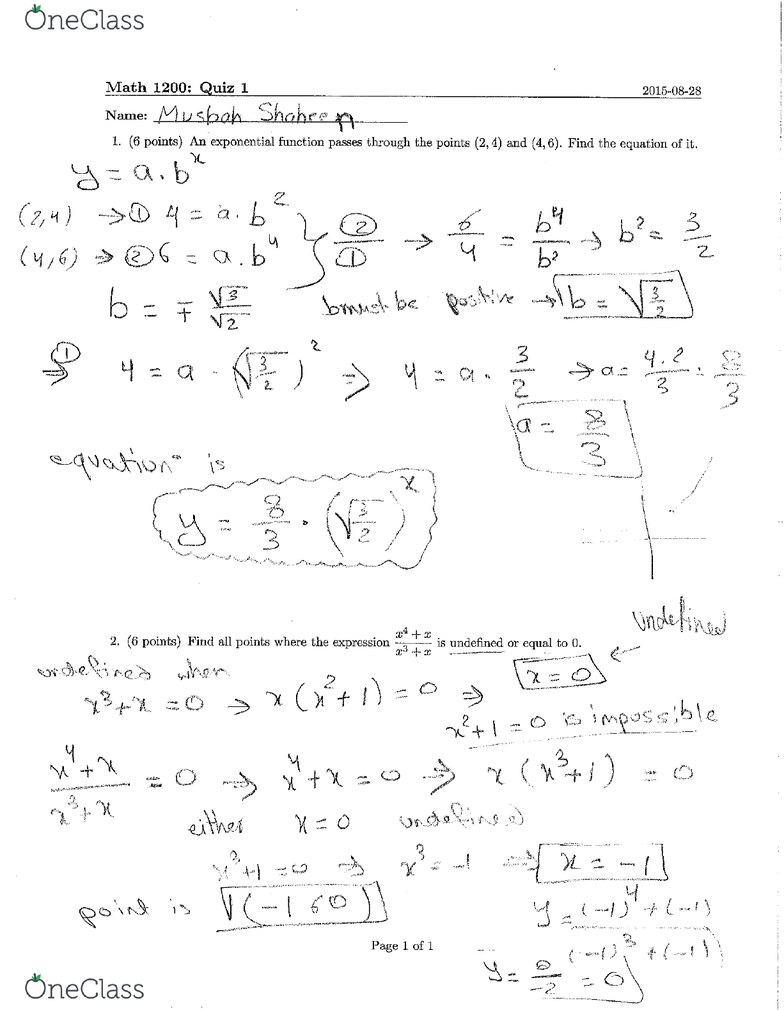 OneClass
Math 1200: Quiz 1 2015-08-28
Name: Musbah Shaheen
1. (6 points) An exponential function passes through the points (2, 4) and (4, 6). Find the equation of it.
y = a.b^x
(2,4) → ① 4 = a.b^2
(4,6) → ② 6 = a.b^4 } ②/① → 6/4 = b^4/b^2 → b^2 = 3/2
b = ∓ √3/√2 b must be positive → b = √(3/2)
①⇒ 4 = a · (√(3/2))^2 ⇒ 4 = a · 3/2 → a = 4.2/3 = 8/3
a = 8/3
equation is
y = 8/3 · (√(3/2))^x
undefined
2. (6 points) Find all points where the expression (x^4 + x)/(x^3 + x) is undefined or equal to 0.
undefined when x = 0 ←
x^3 + x = 0 → x(x^2 + 1) = 0 ⇒
x^2 + 1 = 0 is impossible
(x^4 + x)/(x^3 + x) = 0 → x^4 + x = 0 ⇒ x(x^3 + 1) = 0
either x = 0 undefined
x^3 + 1 = 0 ⇒ x^3 = -1 ⇒ x = -1
point is (-1 6 0) y = ((-1)^4 + (-1))/((-1)^3 + (-1))
Page 1 of 1
y = 0/-2 = 0
OneClass